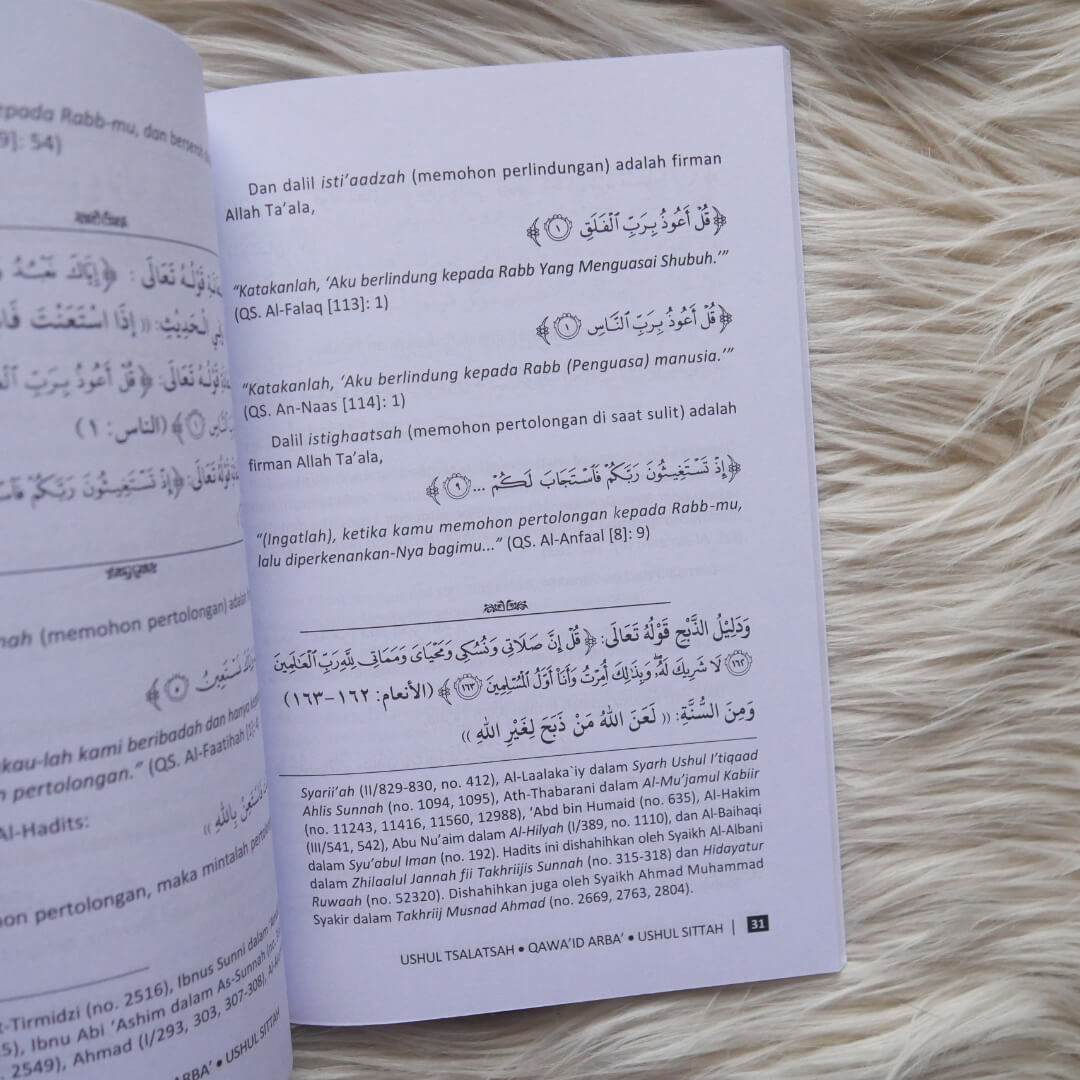 epada Rabb-mu, dan
9]: 54)
قَوْلُهُ تَعَالَى : ﴿إِيَّاكَ نَعْبُدُ
الْحَدِيْثِ: ((إِذَا اسْتَعَنْتَ
قَوْلُهُ تَعَالَى: ﴿قُلْ أَعُوذُ بِرَبِّ
﴾ (الناس: ١)
قَوْلُهُ تَعَالَى: ﴿إِذْ تَسْتَغِيثُونَ رَبَّكُمْ
nah (memohon pertolongan)
نَسْتَعِينُ ۝٥﴾
kau-lah kami beribadah dan hanya
n pertolongan." (QS. Al-Faatihah [1]:
Al-Hadits:
فَاسْتَعِنْ بِاللّٰهِ ))
hon pertolongan, maka mintalah
t-Tirmidzi (no. 2516), Ibnus Sunni dalam
5), Ibnu Abi 'Ashim dalam As-Sunnah (no.
. 2549), Ahmad (I/293, 303, 307-308),
ARBA' • USHUL SITTAH
Dan dalil isti'aadzah (memohon perlindungan) adalah firman
Allah Ta'ala,
﴿قُلْ أَعُوذُ بِرَبِّ ٱلْفَلَقِ ۝١﴾
"Katakanlah, 'Aku berlindung kepada Rabb Yang Menguasai Shubuh.'"
(QS. Al-Falaq [113]: 1)
﴿قُلْ أَعُوذُ بِرَبِّ ٱلنَّاسِ ۝١﴾
"Katakanlah, 'Aku berlindung kepada Rabb (Penguasa) manusia.'"
(QS. An-Naas [114]: 1)
Dalil istighaatsah (memohon pertolongan di saat sulit) adalah
firman Allah Ta'ala,
﴿إِذْ تَسْتَغِيثُونَ رَبَّكُمْ فَٱسْتَجَابَ لَكُمْ ... ۝٩﴾
"(Ingatlah), ketika kamu memohon pertolongan kepada Rabb-mu,
lalu diperkenankan-Nya bagimu..." (QS. Al-Anfaal [8]: 9)
وَدَلِيْلُ الذَّبْحِ قَوْلُهُ تَعَالَى: ﴿قُلْ إِنَّ صَلَاتِى وَنُسُكِى وَمَحْيَاىَ وَمَمَاتِى لِلَّهِ رَبِّ ٱلْعَٰلَمِينَ
۝١٦٢ لَا شَرِيكَ لَهُۥ وَبِذَٰلِكَ أُمِرْتُ وَأَنَا۠ أَوَّلُ ٱلْمُسْلِمِينَ ۝١٦٣﴾ (الأنعام: ١٦٢-١٦٣)
وَمِنَ السُّنَّةِ: (( لَعَنَ اللّٰهُ مَنْ ذَبَحَ لِغَيْرِ اللّٰهِ ))
Syarii'ah (II/829-830, no. 412), Al-Laalaka`iy dalam Syarh Ushul I'tiqaad
Ahlis Sunnah (no. 1094, 1095), Ath-Thabarani dalam Al-Mu'jamul Kabiir
(no. 11243, 11416, 11560, 12988), 'Abd bin Humaid (no. 635), Al-Hakim
(III/541, 542), Abu Nu'aim dalam Al-Hilyah (I/389, no. 1110), dan Al-Baihaqi
dalam Syu'abul Iman (no. 192). Hadits ini dishahihkan oleh Syaikh Al-Albani
dalam Zhilaalul Jannah fii Takhriijis Sunnah (no. 315-318) dan Hidayatur
Ruwaah (no. 52320). Dishahihkan juga oleh Syaikh Ahmad Muhammad
Syakir dalam Takhriij Musnad Ahmad (no. 2669, 2763, 2804).
USHUL TSALATSAH • QAWA'ID ARBA' • USHUL SITTAH | 31